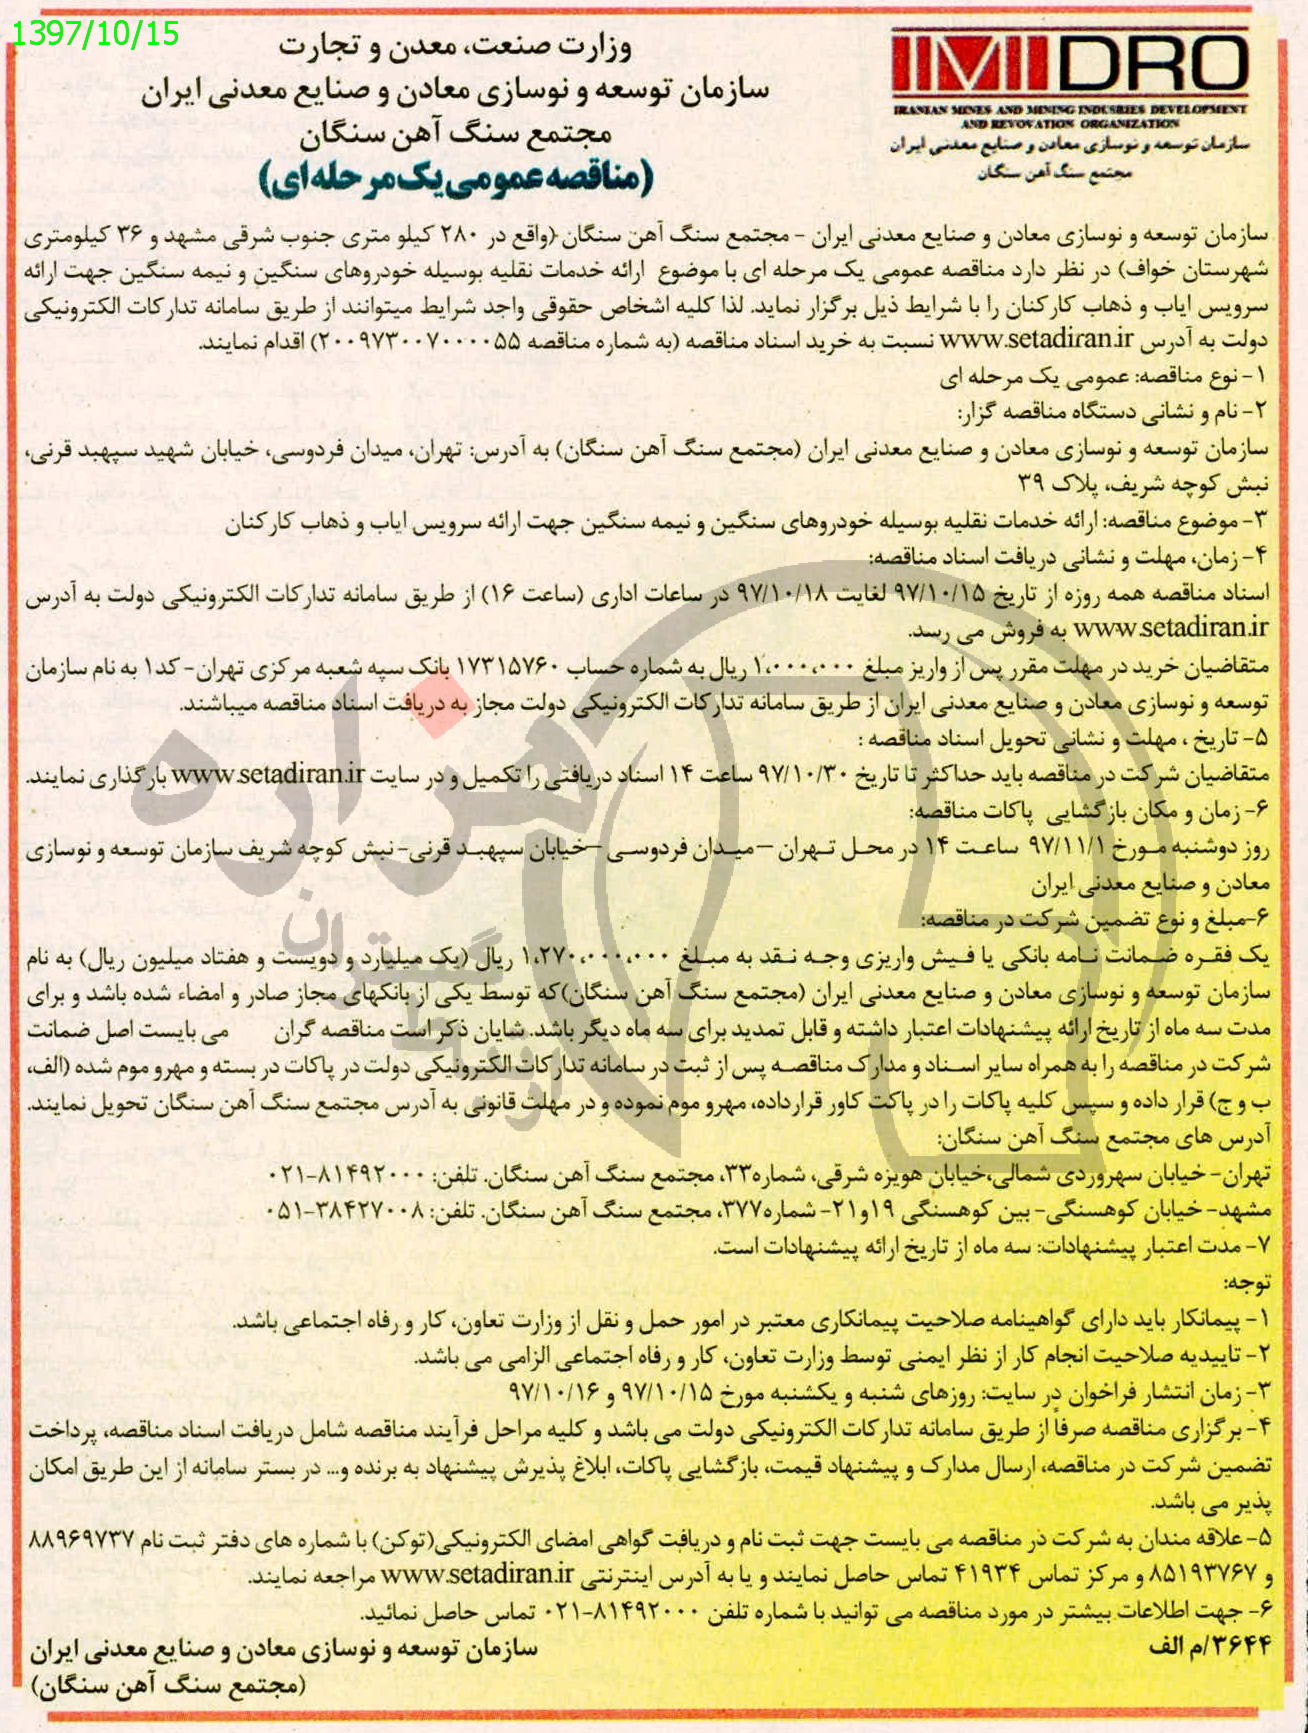 1397/10/15
IMIDRO
IRANIAN MINES AND MINING INDUSRIES DEVELOPMENT
AND REVOVATION ORGANIZATION
سازمان توسعه و نوسازی معادن و صنایع معدنی ایران
مجتمع سنگ آهن سنگان
وزارت صنعت، معدن و تجارت
سازمان توسعه و نوسازی معادن و صنایع معدنی ایران
مجتمع سنگ آهن سنگان
(مناقصه عمومی یک مرحله‌ای)
سازمان توسعه و نوسازی معادن و صنایع معدنی ایران - مجتمع سنگ آهن سنگان (واقع در ۲۸۰ کیلو متری جنوب شرقی مشهد و ۳۶ کیلومتری
شهرستان خواف) در نظر دارد مناقصه عمومی یک مرحله ای با موضوع ارائه خدمات نقلیه بوسیله خودروهای سنگین و نیمه سنگین جهت ارائه
سرویس ایاب و ذهاب کارکنان را با شرایط ذیل برگزار نماید. لذا کلیه اشخاص حقوقی واجد شرایط میتوانند از طریق سامانه تدارکات الکترونیکی
دولت به آدرس www.setadiran.ir نسبت به خرید اسناد مناقصه (به شماره مناقصه ۲۰۰۹۷۳۰۰۷۰۰۰۰۵۵) اقدام نمایند.
۱- نوع مناقصه: عمومی یک مرحله ای
۲- نام و نشانی دستگاه مناقصه گزار:
سازمان توسعه و نوسازی معادن و صنایع معدنی ایران (مجتمع سنگ آهن سنگان) به آدرس: تهران، میدان فردوسی، خیابان شهید سپهبد قرنی،
نبش کوچه شریف، پلاک ۳۹
۳- موضوع مناقصه: ارائه خدمات نقلیه بوسیله خودروهای سنگین و نیمه سنگین جهت ارائه سرویس ایاب و ذهاب کارکنان
۴- زمان، مهلت و نشانی دریافت اسناد مناقصه:
اسناد مناقصه همه روزه از تاریخ ۹۷/۱۰/۱۵ لغایت ۹۷/۱۰/۱۸ در ساعات اداری (ساعت ۱۶) از طریق سامانه تدارکات الکترونیکی دولت به آدرس
www.setadiran.ir به فروش می رسد.
متقاضیان خرید در مهلت مقرر پس از واریز مبلغ ۱،۰۰۰،۰۰۰ ریال به شماره حساب ۱۷۳۱۵۷۶۰ بانک سپه شعبه مرکزی تهران- کد۱ به نام سازمان
توسعه و نوسازی معادن و صنایع معدنی ایران از طریق سامانه تدارکات الکترونیکی دولت مجاز به دریافت اسناد مناقصه میباشند.
۵- تاریخ ، مهلت و نشانی تحویل اسناد مناقصه :
متقاضیان شرکت در مناقصه باید حداکثر تا تاریخ ۹۷/۱۰/۳۰ ساعت ۱۴ اسناد دریافتی را تکمیل و در سایت www.setadiran.ir بارگذاری نمایند.
۶- زمان و مکان بازگشایی پاکات مناقصه:
روز دوشنبه مورخ ۹۷/۱۱/۱ ساعت ۱۴ در محل تهران –میدان فردوسی –خیابان سپهبد قرنی- نبش کوچه شریف سازمان توسعه و نوسازی
معادن و صنایع معدنی ایران
۶-مبلغ و نوع تضمین شرکت در مناقصه:
یک فقره ضمانت نامه بانکی یا فیش واریزی وجه نقد به مبلغ ۱،۲۷۰،۰۰۰،۰۰۰ ریال (یک میلیارد و دویست و هفتاد میلیون ریال) به نام
سازمان توسعه و نوسازی معادن و صنایع معدنی ایران (مجتمع سنگ آهن سنگان)که توسط یکی از بانکهای مجاز صادر و امضاء شده باشد و برای
مدت سه ماه از تاریخ ارائه پیشنهادات اعتبار داشته و قابل تمدید برای سه ماه دیگر باشد. شایان ذکر است مناقصه گران می بایست اصل ضمانت
شرکت در مناقصه را به همراه سایر اسناد و مدارک مناقصه پس از ثبت در سامانه تدارکات الکترونیکی دولت در پاکات در بسته و مهر و موم شده (الف،
ب و ج) قرار داده و سپس کلیه پاکات را در پاکت کاور قرارداده، مهرو موم نموده و در مهلت قانونی به آدرس مجتمع سنگ آهن سنگان تحویل نمایند.
آدرس های مجتمع سنگ آهن سنگان:
تهران- خیابان سهروردی شمالی،خیابان هویزه شرقی، شماره۳۳، مجتمع سنگ آهن سنگان. تلفن: ۸۱۴۹۲۰۰۰-۰۲۱
مشهد- خیابان کوهسنگی- بین کوهسنگی ۱۹و۲۱- شماره۳۷۷، مجتمع سنگ آهن سنگان. تلفن: ۳۸۴۲۷۰۰۸-۰۵۱
۷- مدت اعتبار پیشنهادات: سه ماه از تاریخ ارائه پیشنهادات است.
توجه:
۱- پیمانکار باید دارای گواهینامه صلاحیت پیمانکاری معتبر در امور حمل و نقل از وزارت تعاون، کار و رفاه اجتماعی باشد.
۲- تاییدیه صلاحیت انجام کار از نظر ایمنی توسط وزارت تعاون، کار و رفاه اجتماعی الزامی می باشد.
۳- زمان انتشار فراخوان در سایت: روزهای شنبه و یکشنبه مورخ ۹۷/۱۰/۱۵ و ۹۷/۱۰/۱۶
۴- برگزاری مناقصه صرفاً از طریق سامانه تدارکات الکترونیکی دولت می باشد و کلیه مراحل فرآیند مناقصه شامل دریافت اسناد مناقصه، پرداخت
تضمین شرکت در مناقصه، ارسال مدارک و پیشنهاد قیمت، بازگشایی پاکات، ابلاغ پذیرش پیشنهاد به برنده و... در بستر سامانه از این طریق امکان
پذیر می باشد.
۵- علاقه مندان به شرکت در مناقصه می بایست جهت ثبت نام و دریافت گواهی امضای الکترونیکی(توکن) با شماره های دفتر ثبت نام ۸۸۹۶۹۷۳۷
و ۸۵۱۹۳۷۶۷ و مرکز تماس ۴۱۹۳۴ تماس حاصل نمایند و یا به آدرس اینترنتی www.setadiran.ir مراجعه نمایند.
۶- جهت اطلاعات بیشتر در مورد مناقصه می توانید با شماره تلفن ۸۱۴۹۲۰۰۰-۰۲۱ تماس حاصل نمائید.
۳۶۴۴/م الف
سازمان توسعه و نوسازی معادن و صنایع معدنی ایران
(مجتمع سنگ آهن سنگان)
هزاره